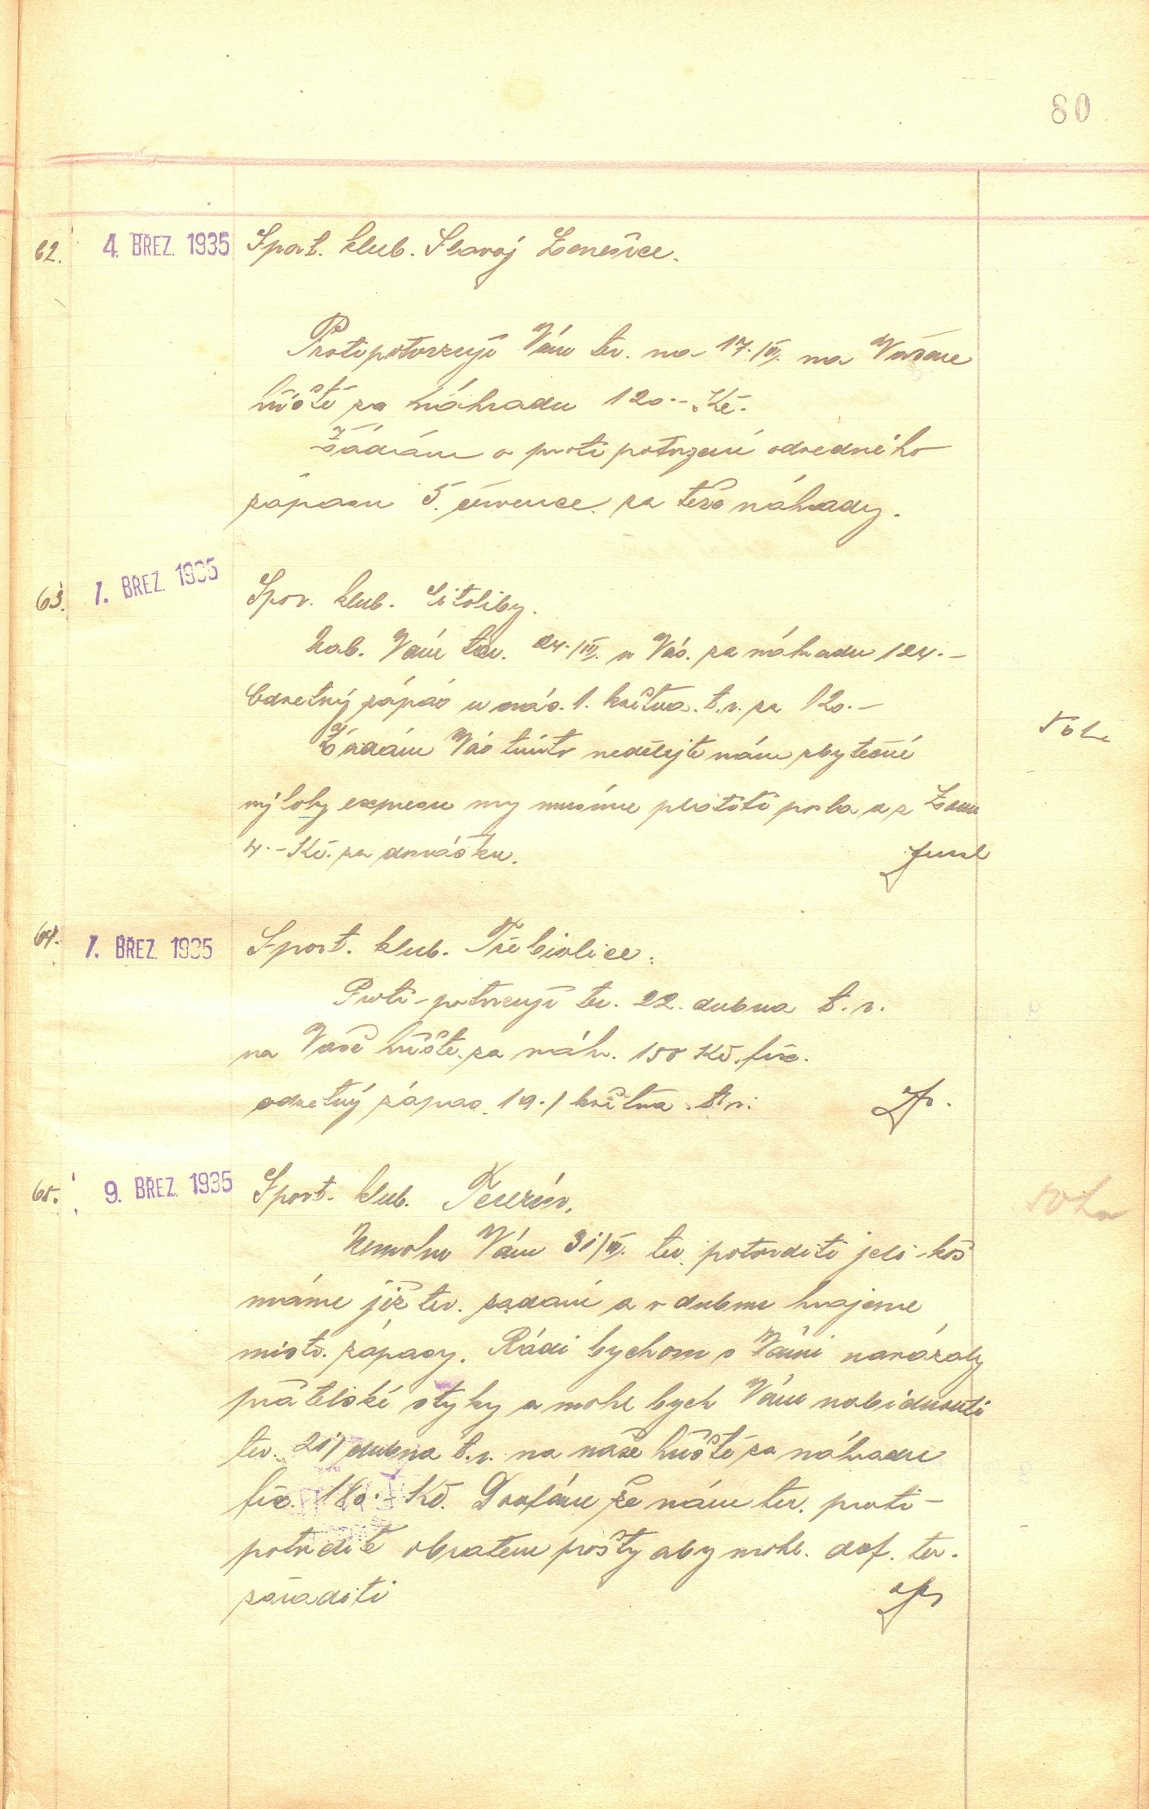 80
62. 4. BŘEZ. 1935 Sport. klub. Slavoj Lenešice.
Protipotvrzuji Vám ter. na 17./III. na Vašeme
hřiště za náhradu 120.- Kč.
Žádáme o proti potvrzení odvedného
zápasu 5. července za téže náhrady.
63. 7. BŘEZ. 1935 Spor. klub. Citoliby.
Nab. Vám ter. 24./III. u Vás. za náhradu 124.-
Odvetný zápas u nás. 1. května. t.r. za 120.-
50 h
Žádám Vás tímto nedělejte nám zbytečné
výlohy expresu my musíme platiti posla a z
4.- Kč. za donášku.
64. 7. BŘEZ. 1935 Sport. klub. Třebivlice.
Proti-potvrzuji ter. 22. dubna t.r.
na Vaše hřiště. za náhr. 150 Kč. fix.
odvetný zápas. 19./ května t.r.
65. 9. BŘEZ. 1935 Sport. klub. Terezín.
50 h
Nemohu Vám 31/III. ter. potvrditi jeli-kož
máme již ter. zadaný a v dubnu hrajeme
mistr. zápasy. Rádi bychom s Vámi navázaly
přátelské styky a mohl bych Vám nabídnouti
ter. 21/ dubna t.r. na naše hřiště za náhradu
fix. 180.- Kč. Doufám že nám ter. proti-
potvrdíte obratem pošty aby mohl. def. ter.
zařaditi